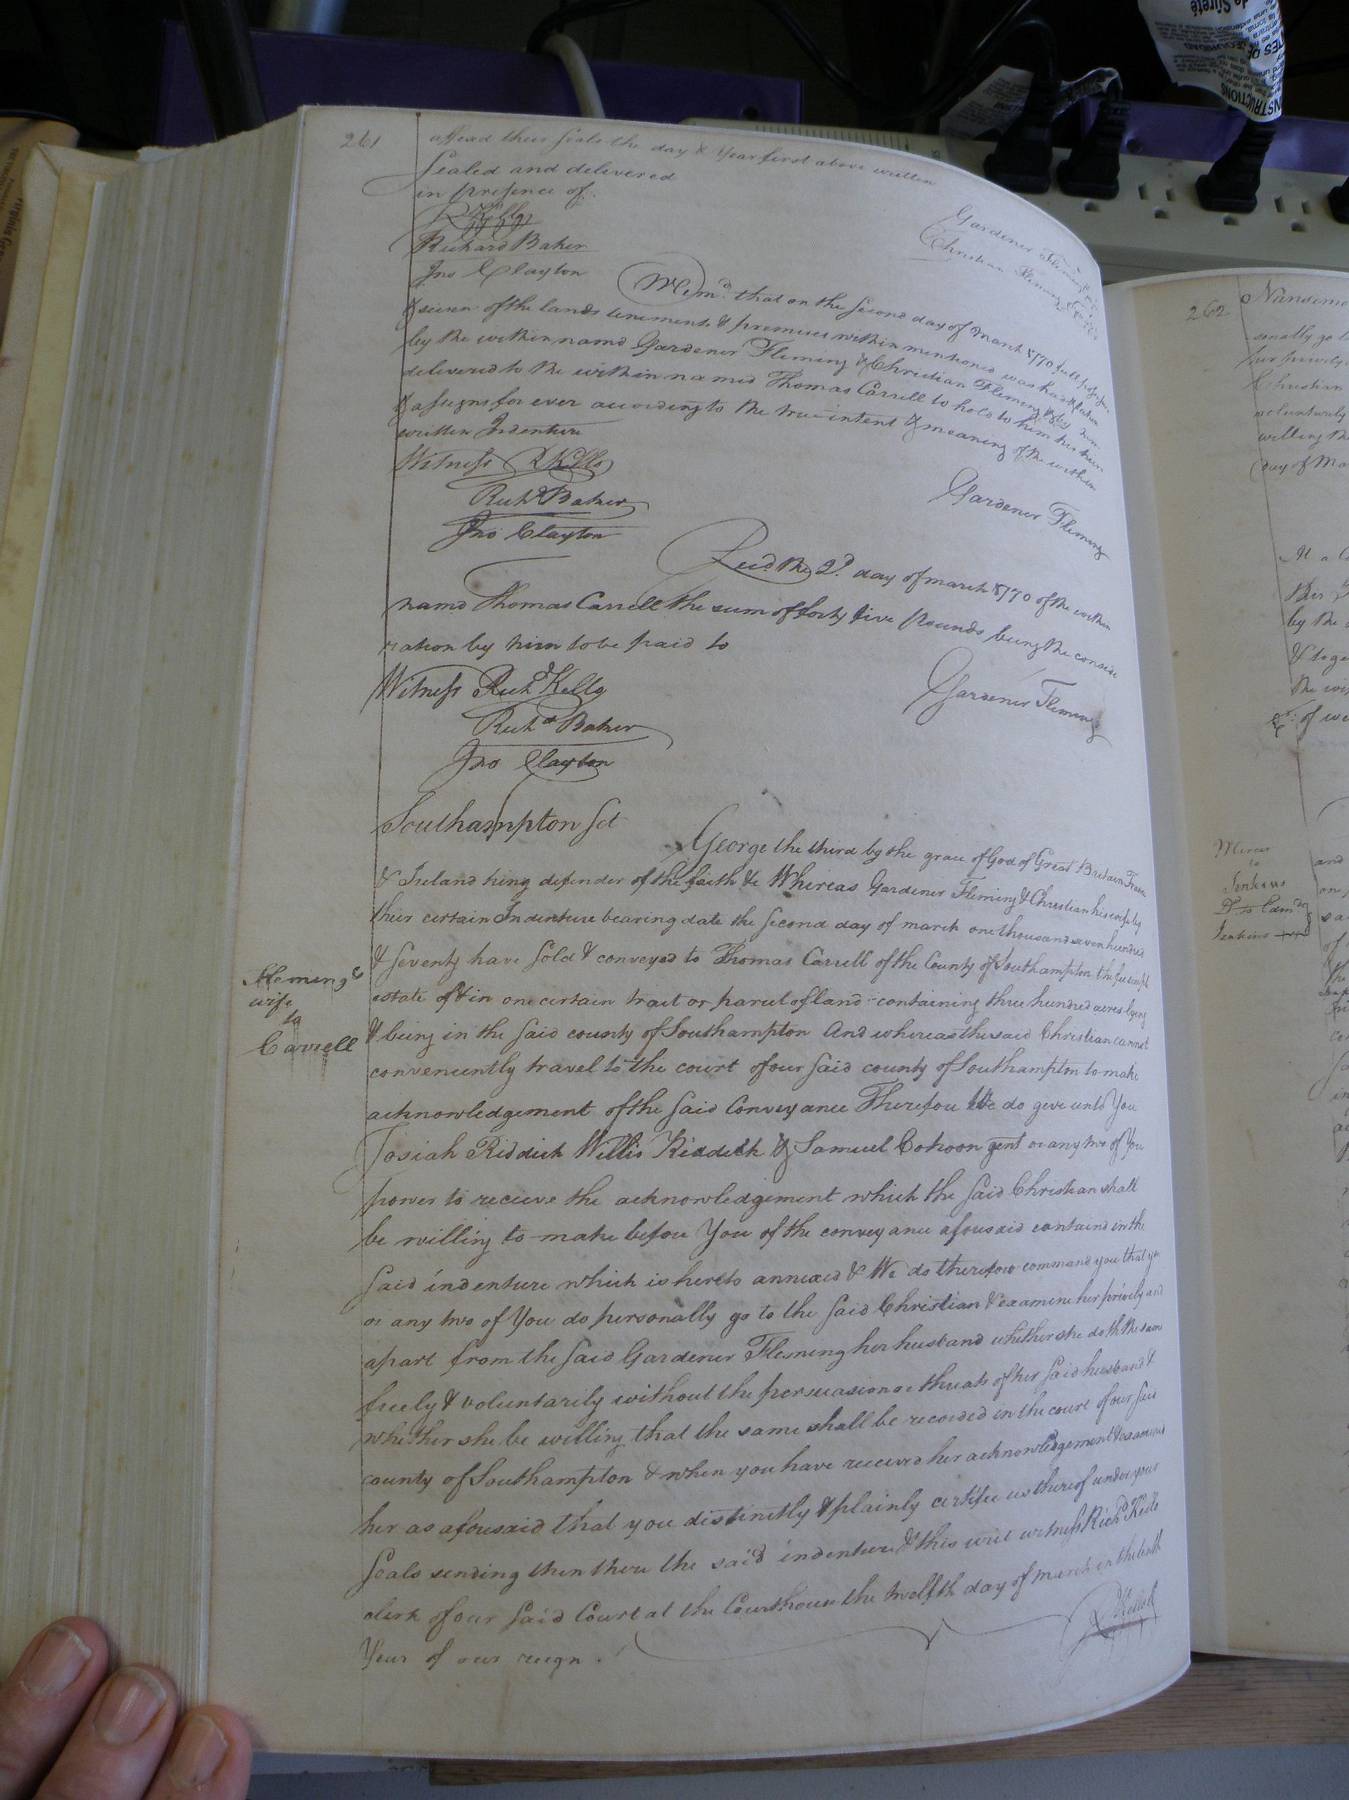 261
affixed their seals the day & Year first above written
Sealed and delivered
in presence of
R Kello
Richard Baker
Jno Clayton
Gardener Fleming
Christian Fleming
Memd. that on the second day of march 1770 full possession
& seizen of the lands tenements & premises within mentioned was had & taken
by the within namd Gardener Fleming & Christian Fleming & by them
delivered to the within named Thomas Carrell to hold to him his heirs
& assigns for ever according to the true intent & meaning of the within
written Indenture
Witness R Kello
Richd Baker
Jno Clayton
Gardener Fleming
Recd. the 2d. day of march 1770 of the within
namd Thomas Carrell the sum of forty five pounds being the conside
ration by him to be paid to
Witness Richd Kello
Richd Baker
Jno Clayton
Gardener Fleming
Southampton Sct
George the third by the grace of God of Great Britain France
& Ireland king defender of the faith &c Whereas Gardener Fleming & Christian his wife by
their certain Indenture bearing date the second day of march one thousand seven hundred
& seventy have sold & conveyed to Thomas Carrell of the County of Southampton the fee simple
estate of & in one certain tract or parcel of land containing three hundred acres lying
& being in the said county of Southampton And whereas the said Christian cannot
conveniently travel to the court of our said county of Southampton to make
acknowledgement of the said Conveyance Therefore We do give unto You
Josiah Riddick Willis Riddick & Samuel Cohoon gent or any two of You
power to receive the acknowledgement which the said Christian shall
be willing to make before You of the conveyance aforesaid containd in the
said indenture which is hereto annexed & We do therefore command you that you
or any two of You do personally go to the said Christian & examine her privily and
apart from the said Gardener Fleming her husband whether she doth the same
freely & voluntarily without the persuasion or threats of her said husband &
whether she be willing that the same shall be recorded in the court of our said
county of Southampton & when you have received her acknowledgement & examined
her as aforesaid that you distinctly & plainly certifie us thereof under your
seals sending then there the said indenture & this writ witness Richd Kello
clerk of our said Court at the Courthouse the twelfth day of march in the tenth
Year of our reign.
R Kello
Fleming &
wife
to
Carrell
262
Christian
voluntarily
willing
day of Ma
At a C
by the
& toge
of we
to
Jenkins
Jenkins
and
STRUCTIONS
de Sûreté